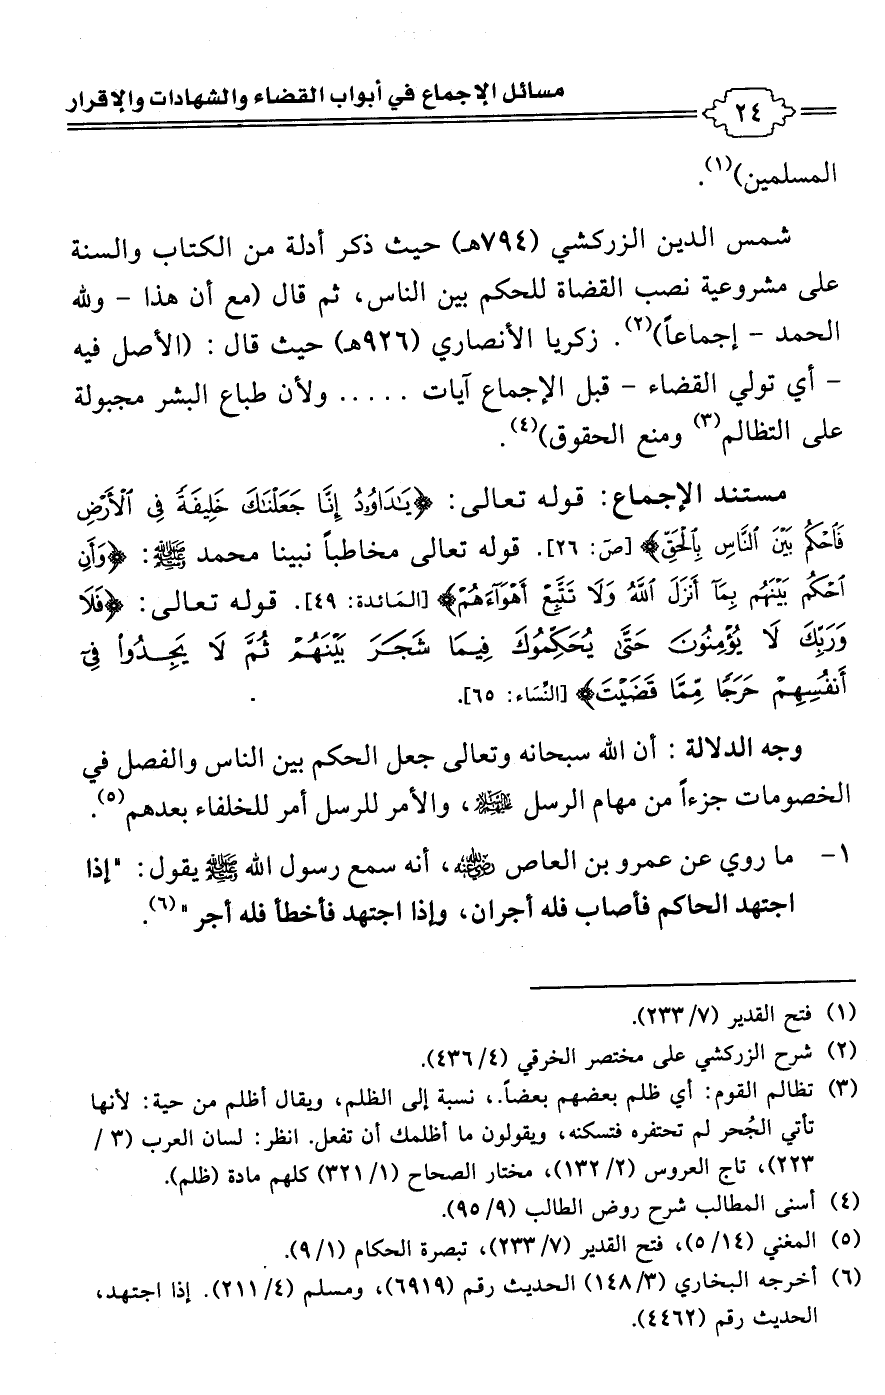 مسائل الإجماع في أبواب القضاء والشهادات والإقرار
٢٤
المسلمين)(١).
شمس الدين الزركشي (٧٩٤هـ) حيث ذكر أدلة من الكتاب والسنة
على مشروعية نصب القضاة للحكم بين الناس، ثم قال (مع أن هذا - ولله
الحمد - إجماعاً)(٢). زكريا الأنصاري (٩٢٦هـ) حيث قال : (الأصل فيه
- أي تولي القضاء - قبل الإجماع آيات ..... ولأن طباع البشر مجبولة
على التظالم(٣) ومنع الحقوق)(٤).
مستند الإجماع: قوله تعالى: ﴿يَٰدَاوُۥدُ إِنَّا جَعَلْنَٰكَ خَلِيفَةً فِي ٱلْأَرْضِ
فَٱحْكُم بَيْنَ ٱلنَّاسِ بِٱلْحَقِّ﴾ [صَ: ٢٦]. قوله تعالى مخاطباً نبينا محمد ﷺ: ﴿وَأَنِ
ٱحْكُم بَيْنَهُم بِمَآ أَنزَلَ ٱللَّهُ وَلَا تَتَّبِعْ أَهْوَآءَهُمْ﴾ [المَائدة: ٤٩]. قوله تعالى: ﴿فَلَا
وَرَبِّكَ لَا يُؤْمِنُونَ حَتَّىٰ يُحَكِّمُوكَ فِيمَا شَجَرَ بَيْنَهُمْ ثُمَّ لَا يَجِدُوا۟ فِىٓ
أَنفُسِهِمْ حَرَجًا مِّمَّا قَضَيْتَ﴾ [النِّسَاء: ٦٥].
وجه الدلالة : أن الله سبحانه وتعالى جعل الحكم بين الناس والفصل في
الخصومات جزءاً من مهام الرسل عليهم السلام، والأمر للرسل أمر للخلفاء بعدهم(٥).
١- ما روي عن عمرو بن العاص رضي الله عنه، أنه سمع رسول الله ﷺ يقول: "إذا
اجتهد الحاكم فأصاب فله أجران، وإذا اجتهد فأخطأ فله أجر "(٦).
(١) فتح القدير (٧/ ٢٣٣).
(٢) شرح الزركشي على مختصر الخرقي (٤/ ٤٣٦).
(٣) تظالم القوم: أي ظلم بعضهم بعضاً.، نسبة إلى الظلم، ويقال أظلم من حية: لأنها
تأتي الجُحر لم تحتفره فتسكنه، ويقولون ما أظلمك أن تفعل. انظر: لسان العرب (٣ /
٢٢٣)، تاج العروس (٢/ ١٣٢)، مختار الصحاح (١/ ٣٢١) كلهم مادة (ظلم).
(٤) أسنى المطالب شرح روض الطالب (٩/ ٩٥).
(٥) المغني (١٤/ ٥)، فتح القدير (٧/ ٢٣٣)، تبصرة الحكام (١/ ٩).
(٦) أخرجه البخاري (٣/ ١٤٨) الحديث رقم (٦٩١٩)، ومسلم (٤/ ٢١١). إذا اجتهد،
الحديث رقم (٤٤٦٢).